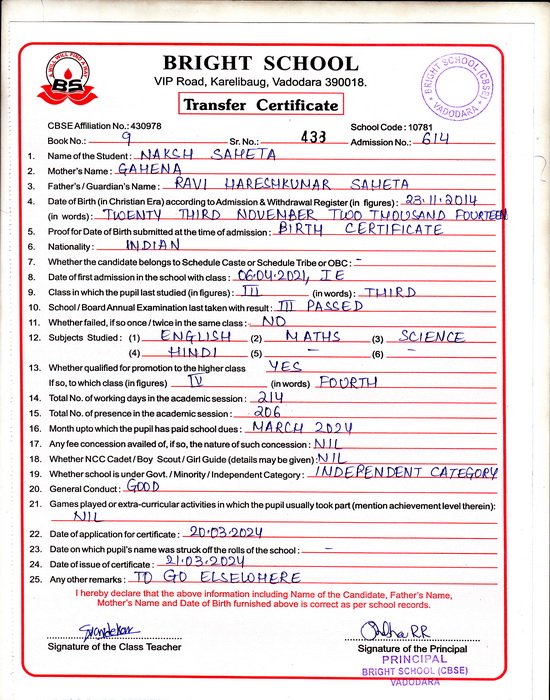 A WILL WILL FIND A WAY
BS
BRIGHT SCHOOL
VIP Road, Karelibaug, Vadodara 390018.
Transfer Certificate
BRIGHT SCHOOL (CBSE)
VADODARA
CBSE Affiliation No.: 430978 School Code : 10781
Book No.: 9 Sr. No.: 433 Admission No.: 614
1. Name of the Student : NAKSH SAHETA
2. Mother's Name : GAHENA
3. Father's / Guardian's Name : RAVI HARESHKUMAR SAHETA
4. Date of Birth (in Christian Era) according to Admission & Withdrawal Register (in figures) : 23.11.2014
(in words) : TWENTY THIRD NOVEMBER TWO THOUSAND FOURTEEN
5. Proof for Date of Birth submitted at the time of admission : BIRTH CERTIFICATE
6. Nationality : INDIAN
7. Whether the candidate belongs to Schedule Caste or Schedule Tribe or OBC : -
8. Date of first admission in the school with class : 06.04.2021, I E
9. Class in which the pupil last studied (in figures) : III (in words) : THIRD
10. School / Board Annual Examination last taken with result : III PASSED
11. Whether failed, if so once / twice in the same class : NO
12. Subjects Studied : (1) ENGLISH (2) MATHS (3) SCIENCE
(4) HINDI (5) - (6) -
13. Whether qualified for promotion to the higher class YES
If so, to which class (in figures) IV (in words) FOURTH
14. Total No. of working days in the academic session : 214
15. Total No. of presence in the academic session : 206
16. Month upto which the pupil has paid school dues : MARCH 2024
17. Any fee concession availed of, if so, the nature of such concession : NIL
18. Whether NCC Cadet / Boy Scout / Girl Guide (details may be given) : NIL
19. Whether school is under Govt. / Minority / Independent Category : INDEPENDENT CATEGORY
20. General Conduct : GOOD
21. Games played or extra-curricular activities in which the pupil usually took part (mention achievement level therein):
NIL
22. Date of application for certificate : 20.03.2024
23. Date on which pupil's name was struck off the rolls of the school : -
24. Date of issue of certificate : 21.03.2024
25. Any other remarks : TO GO ELSEWHERE
I hereby declare that the above information including Name of the Candidate, Father's Name,
Mother's Name and Date of Birth furnished above is correct as per school records.
Signature of the Class Teacher
Signature of the Principal
PRINCIPAL
BRIGHT SCHOOL (CBSE)
VADODARA